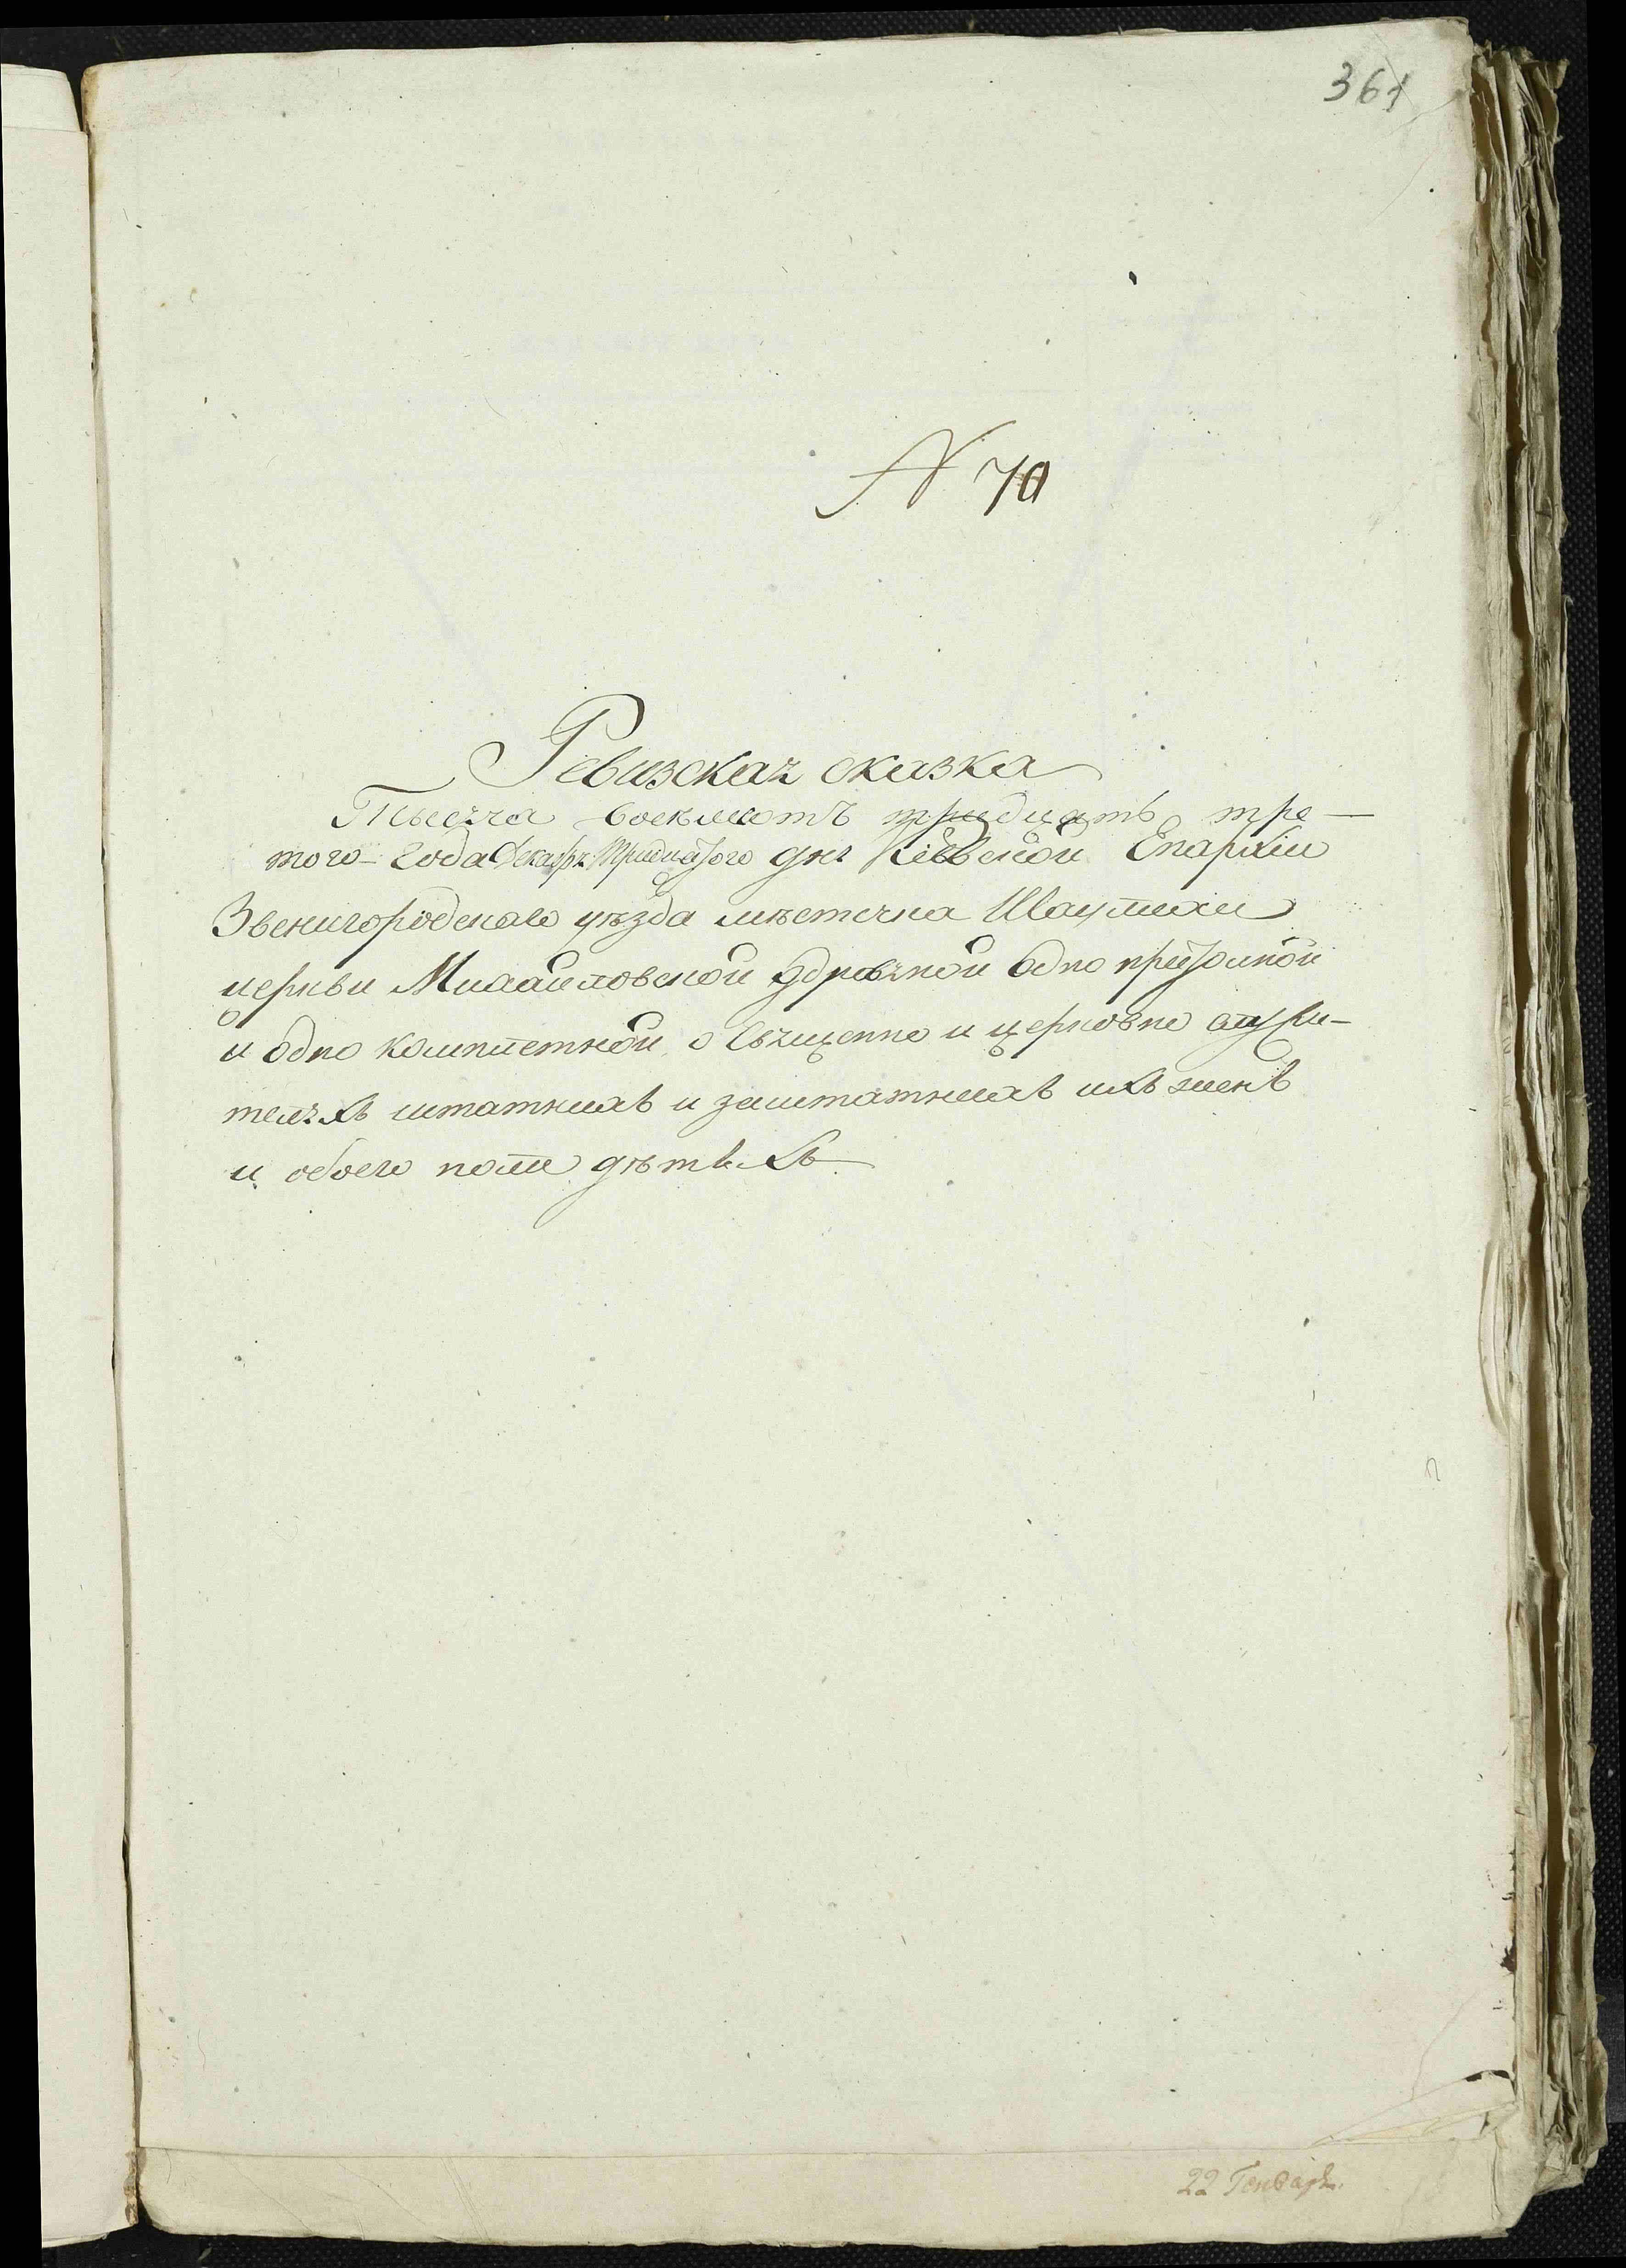 361
N 70
Ревизская сказка
Тысяча восемьсотъ тридцать тре-
того года Декабря тридцатого дня Кіевской Епархіи
Звенигородскаго уѣзда мѣстечка
церкви Михайловской одно приходной
и одно комплетной о священно и церковно служи-
теляхъ штатныхъ и заштатныхъ ихъ женъ
и обоего пола дѣтяхъ
22 Генваря